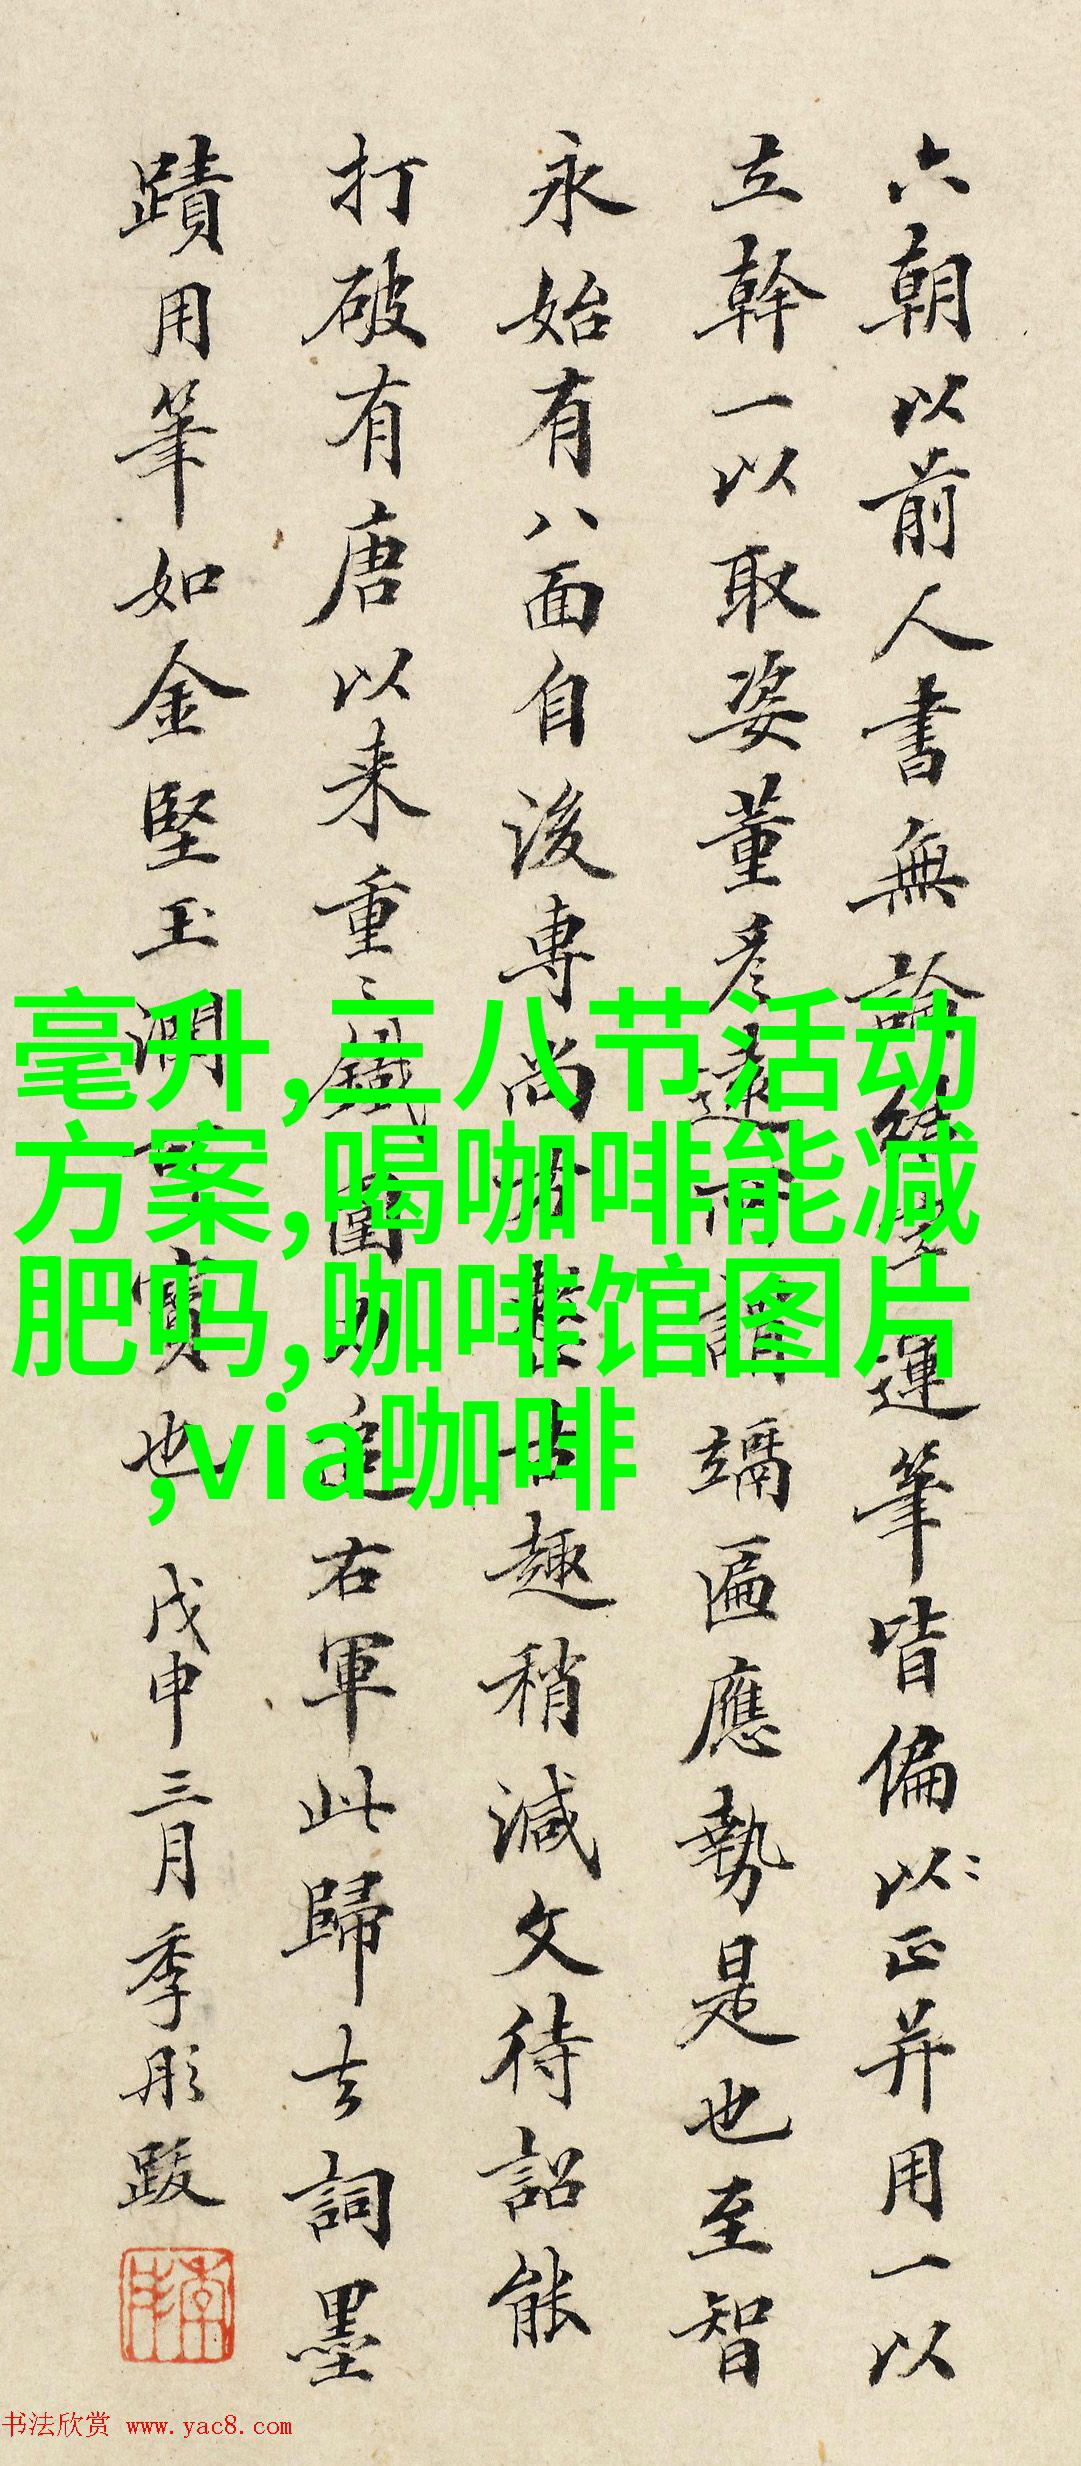 六朝以前人書無論結字運筆皆偏以〻正并用一以
立幹一以取姿董彦遠所謂端匾應勢是也至智
永始有八面自後專尚古趣稍減文待詔能
打破有唐以来重〻鐵圍追右軍此歸去詞墨
蹟用筆如金堅玉潤可寶也 戊申三月季彤跋
毫升,三八节活动
方案,喝咖啡能减
肥吗,咖啡馆图片
,via咖啡
书法欣赏 www.yac8.com